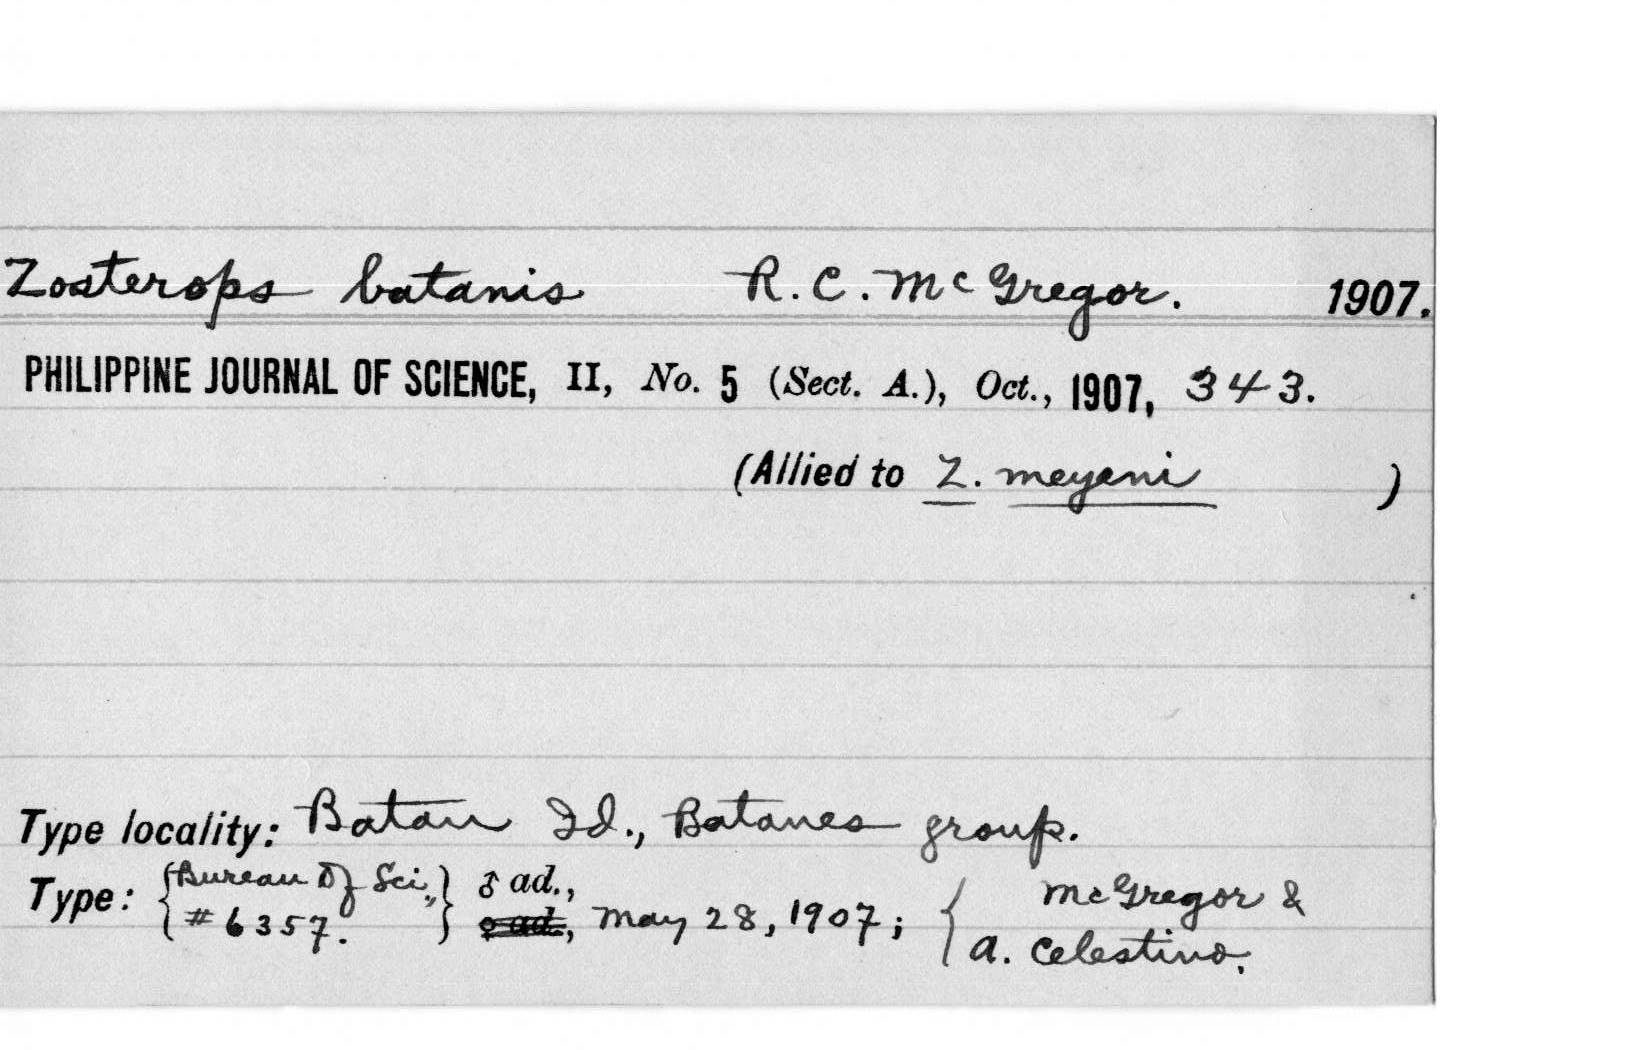 Zosterops batanis R. C. McGregor. 1907.
PHILIPPINE JOURNAL OF SCIENCE, II, No. 5 (Sect. A.), Oct., 1907, 343.
(Allied to Z. meyeni )
Type locality: Batan Id., Batanes group.
Type: {Bureau Of Sci., #6357.} ♂ ad., ♀ ad., May 28, 1907; { McGregor & A. Celestino.